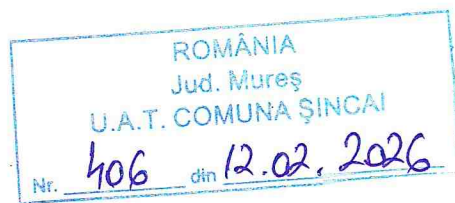 ROMÂNIA
Jud. Mureş
U.A.T. COMUNA ŞINCAI
Nr. 406 din 12.02.2026